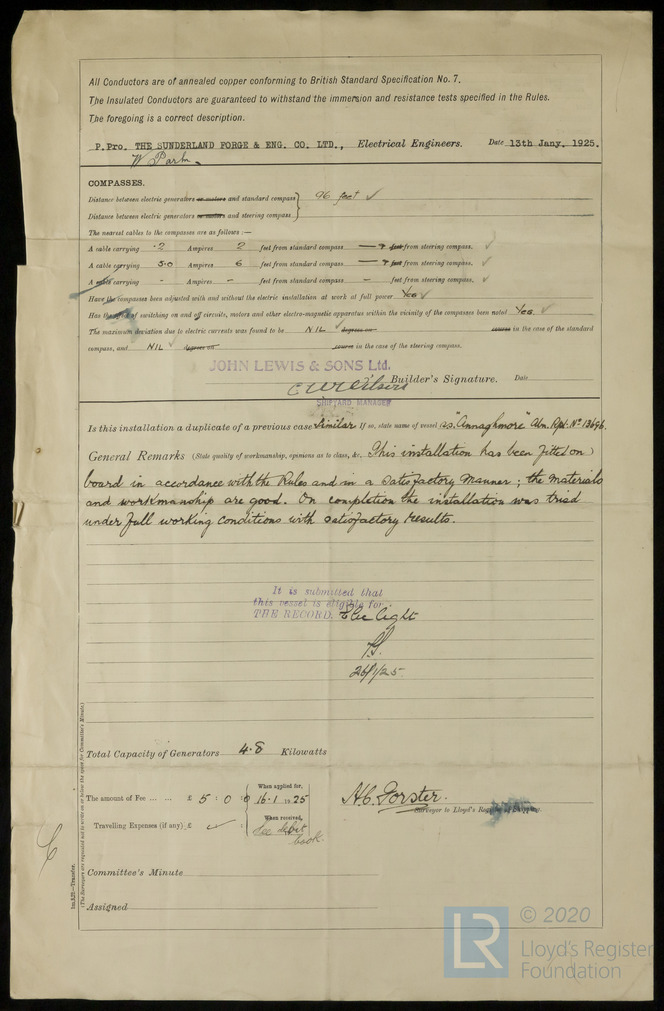 All Conductors are of annealed copper conforming to British Standard Specification No. 7.
The Insulated Conductors are guaranteed to withstand the immersion and resistance tests specified in the Rules.
The foregoing is a correct description.
P. Pro. THE SUNDERLAND FORGE & ENG. CO. LTD., Electrical Engineers. Date 13th Jany. 1925.
COMPASSES.
Distance between electric generators or motors and standard compass 96 feet ✓
Distance between electric generators or motors and steering compass
The nearest cables to the compasses are as follows:—
A cable carrying .2 Ampires 2 feet from standard compass — 7 feet from steering compass. ✓
A cable carrying 5.0 Ampires 6 feet from standard compass — 7 feet from steering compass. ✓
A cable carrying - Ampires - feet from standard compass - feet from steering compass. ✓
Have the compasses been adjusted with and without the electric installation at work at full power Yes ✓
Has the effect of switching on and off circuits, motors and other electro-magnetic apparatus within the vicinity of the compasses been noted Yes. ✓
The maximum deviation due to electric currents was found to be NIL ✓ degrees on course in the case of the standard
compass, and NIL ✓ degrees on course in the case of the steering compass.
JOHN LEWIS & SONS Ltd.
Builder's Signature. Date
SHIPYARD MANAGER
Is this installation a duplicate of a previous case Similar If so, state name of vessel s.s. "Annaghmore" Abn. Rpt. No 13696.
General Remarks (State quality of workmanship, opinions as to class, &c. This installation has been fitted on
board in accordance with the Rules and in a satisfactory manner; the materials
and workmanship are good. On completion the installation was tried
under full working conditions with satisfactory results.
It is submitted that
this vessel is eligible for
THE RECORD. Elec Light
26/1/25.
Total Capacity of Generators 4.8 Kilowatts
The amount of Fee ... ... £ 5 : 0 : 0
When applied for,
16.1.1925
Travelling Expenses (if any) £ ✓
When received,
See debit
book.
H.C. Forster.
Surveyor to Lloyd's Register of Shipping.
Committee's Minute
Assigned
1m.8.21—Transfer.
(The Surveyors are requested not to write on or below the space for Committee's Minute.)
LR
© 2020
Lloyd's Register
Foundation